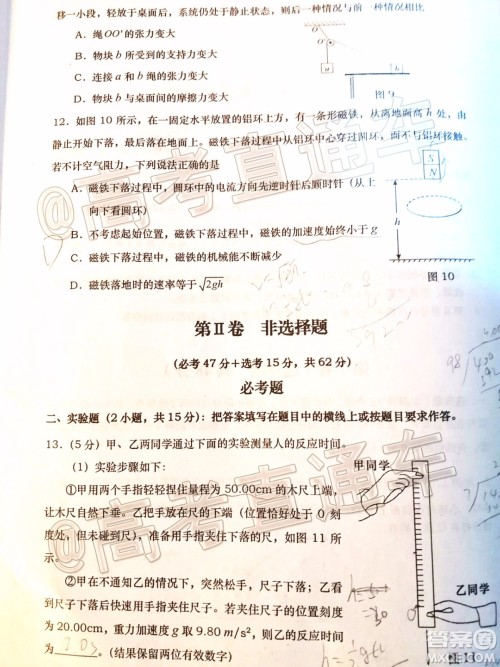 移一小段，轻放于桌面后，系统仍处于静止状态，则后一种情况与前一种情况相比
A．绳OO′的张力变大
B．物块b所受到的支持力变大
C．连接a和b绳的张力变大
D．物块b与桌面间的摩擦力变大
图9
12．如图10所示，在一固定水平放置的铝环上方，有一条形磁铁，从离地面高h处，由
静止开始下落，最后落在地面上。磁铁下落过程中从铝环中心穿过圆环，而不与铝环接触。
若不计空气阻力，下列说法正确的是
A．磁铁下落过程中，圆环中的电流方向先逆时针后顺时针（从上
向下看圆环）
B．不考虑起始位置，磁铁下落过程中，磁铁的加速度始终小于g
C．磁铁下落过程中，磁铁的机械能不断减少
D．磁铁落地时的速率等于√2gh
S
N
h
图10
第Ⅱ卷 非选择题
（必考47分+选考15分，共62分）
必考题
二、实验题（2小题，共15分）：把答案填写在题目中的横线上或按题目要求作答。
13．（5分）甲、乙两同学通过下面的实验测量人的反应时间。
（1）实验步骤如下：
①甲用两个手指轻轻捏住量程为50.00cm的木尺上端，
让木尺自然下垂。乙把手放在尺的下端（位置恰好处于0刻
度处，但未碰到尺），准备用手指夹住下落的尺，如图11所
示。
②甲在不通知乙的情况下，突然松手，尺子下落；乙看
到尺子下落后快速用手指夹住尺子。若夹住尺子的位置刻度
为20.00cm，重力加速度g取9.80m/s²，则乙的反应时间
为 。（结果保留两位有效数字）
甲同学
乙同学
0
@高考直通车
@高考直通车